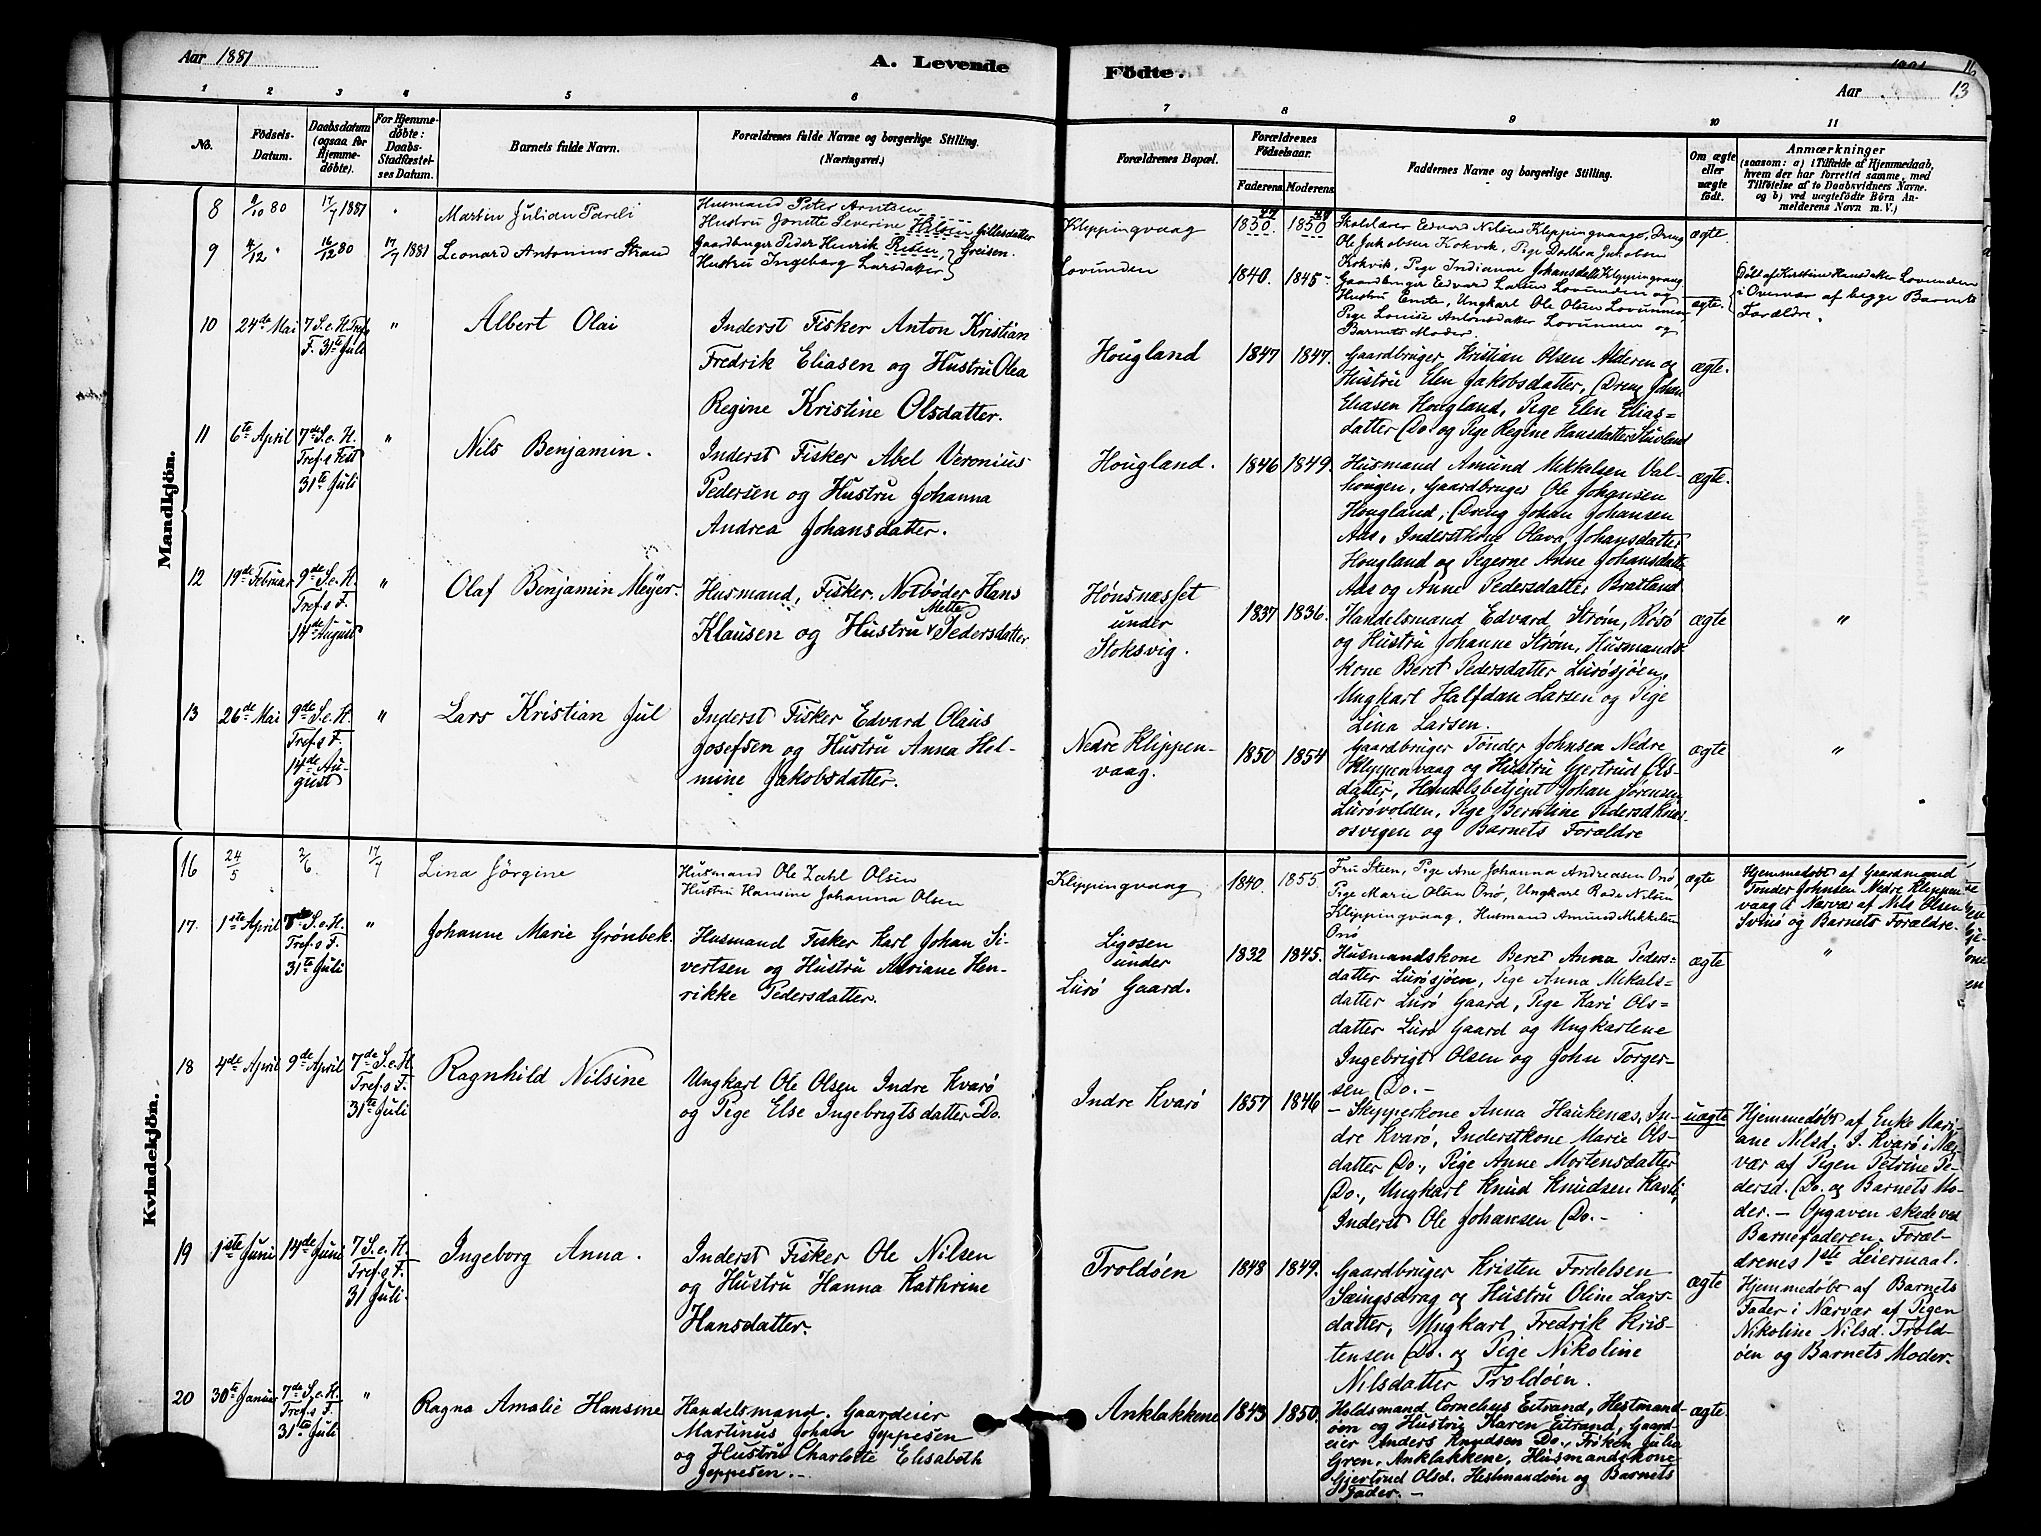 Aar 1881
A. Levende
Födte.
Aar
13
1 2 3 4 5 6 7 8 9 10 11
No.
Födsels-
Datum.
Daabsdatum
(ogsaa for
Hjemme-
döbte).
For Hjemme-
döbte:
Daabs-
Stadfæstel-
ses Datum.
Barnets fulde Navn.
Forældrenes fulde Navne og borgerlige Stilling.
(Næringsvei.)
Forældrenes Bopæl.
Forældrenes
Födselsaar.
Faderens.
Moderens.
Faddernes Navne og borgerlige Stilling.
Om ægte
eller
uægte
födt.
Anmærkninger
(saasom: a) i Tilfælde af Hjemmedaab,
hvem der har forrettet samme, med
Tilföielse af to Daabsvidners Navne.
og b) ved uægtefödte Börn An-
melderens Navn m. V.)
Mandkjön.
8
/10 80
17/7 1881
Martin Julian
Husmand Peter Arntsen
Hustru Jonette Severine Gillesdatter
Klippingvaag
1850
1850
Skolelærer Edvard Nilsen Klippingvaag, Dreng
Ole Jakobsen Kokvik, Pige Dorthea Jakobsen
Kokvik, Pige Indianne Johansdatt Klippingvaag
ægte.
9
4/12 "
16/12 80
17/7 1881
Leonard Antonius Strand
Gaardbruger Peder Henrik Greisen.
Hustru Ingeborg Larsdatter
Lovunden
1840.
1845
Gaardbruger Edvard Larsen Lovunden og
Hustru Emte, Ungkarl Ole Olsen Lovunnen
Pige Louise Antonsdatter Lovunnen og
Barnets Moder
ægte.
Döbt af Kirstine Hansdatter Lovunden
i Overvær af begge Barnets
Forældre.
10
24de Mai
7 S. e. H. Tref.
F. 31te Juli
"
Albert Olai
Inderst Fisker Anton Kristian
Fredrik Eliasen og Hustru Olea
Regine Kristine Olsdatter.
Hougland
1847
1847.
Gaardbruger Kristian Olsen Alderen og
Hustru Elen Jakobsdatter, Dreng Johan
Eliasen Hougland, Pige Elen Elias=
datter Do. og Pige Regine Hansdatter Stuvland
ægte.
11
6te April
7de S. e. H.
Tref.s Fest
31te Juli
"
Nils Benjamin.
Inderst Fisker Abel Veronius
Pedersen og Hustru Johanna
Andrea Johansdatter.
Hougland.
1846
1849.
Husmand Amund Mikkelsen Val-
hougen, Gaardbruger Ole Johansen
Hougland, Dreng Johan Johansen
Aas, Inderstkone Olava Johansdatter
Hougland og Pigerne Anne Johansdatter
Aas og Anne Pedersdatter Bratland
ægte.
12
19de Februar
9de S. e. H.
Tref.s F.
14de August
"
Olaf Benjamin Meyer.
Husmand, Fisker. Notbøder Hans
Klausen og Hustru Mette Pedersdatter
Hónsnæsset
under
Stoksvig.
1837
1836.
Handelsmand Edvard Strøm, Risö
og Hustru Johanne Strøm, Husmands-
kone Beret Pedersdatter Lurøsjøen,
Ungkarl Halfdan Larsen og Pige
Lina Larsen.
ægte
"
13
26de Mai
9de S. e. H.
Tref.s F.
14de Au-
gust
"
Lars Kristian Jul
Inderst Fisker Edvard Olaus
Josefsen og Hustru Anna Hel-
mine Jakobsdatter.
Nedre Klippen-
vaag.
1850
1854
Gaardbruger Tønder Johnsen Nedre
Klippenvaag og Hustru Gjertrud Ols-
datter, Handelsbetjent Johan Sørensen
Lurøvolden, Pige Berntine
osvigen og Barnets Forældre
ægte
"
Kvindekjön.
16
24/5
2/6
17/7
Lina Jörgine
Husmand Ole Zahl Olsen
Hustru Hansine Johanna Olsen
Klippingvaag
1840.
1855.
Fru Steen, Pige Ane Johanna Andreasen Onö,
Pige Marie Olsen Onö, Ungkarl Nilsen
Klippingvaag, Husmand Amund Mikkelsen
Onö
ægte
Hjemmedøbt af Gaardmand
Tønder Johnsen Nedre Klippen-
vaag i Nærvær af Nils Olsen
Svinö og Barnets Forældre.
17.
1ste April
7de S. e. H.
Tref.s F.
31te Juli
"
Johanne Marie Grönbek.
Husmand Fisker Karl Johan Si-
vertsen og Hustru Adriane Hen-
rikke Pedersdatter.
Ligosen
under
Lurö Gaard.
1832
1845.
Husmandskone Beret Anna Peders=
datter Lurøsjøen, Pige Anna Mekals=
datter Lurö Gaard, Pige Kari Ols=
datter Lurö Gaard og Ungkarlene
Ingebrigt Olsen og John Torger-
sen Do. -
ægte
"
18
4de April
9de April
7de S. e. H.
Tref.s F.
31te Juli
Ragnhild Nilsine
Ungkarl Ole Olsen Indre Kvarö
og Pige Else Ingebrigtsdatter Do.
Indre Kvarö
1857
1846
- Skipperkone Anna Haukenæs, In-
dre Kvarö, Inderstkone Marie Ols-
datter Do., Pige Anne Mortensdatter
Do., Ungkarl Knud Knudsen Kavli,
Inderst Ole Johansen Do. -
uægte
Hjemmedøbt af Enke Mari-
ane Nilsd. I. Kvarö i Nær-
vær af Pigen Petrine Pe-
dersd. Do. og Barnets Mo-
der. - Opgaven skede ved
Barnefaderen. Foræl-
drenes 1ste Leiermaal.
19
1ste Juni
14de Juni
7 S. e. H.
Tref.s F.
31 Juli.
Ingeborg Anna.
Inderst Fisker Ole Nilsen
og Hustru Hanna Kathrine
Hansdatter.
Troldøen
1848
1849.
Gaardbruger Kristen Fordelsen
Sæingsdrag og Hustru Oline Lars-
datter, Ungkarl Fredrik Kris-
tensen Do. og Pige Nikoline
Nilsdatter Troldøen.
ægte
Hjemmedøbt af Barnets
Fader i Nærvær af Pigen
Nikoline Nilsd. Trold-
øen og Barnets Moder.
20
30te Januar
7de S. e. H.
Tref.s F.
31te Juli
"
Ragna Amalie Hansine
Handelsmand. Gaardeier
Martinus Johan Jeppesen
og Hustru Charlotte Elisabeth
Jeppesen. -
Anklakkene
1843
1850.
Holdsmand Cornelius Eitrand, Hestmand-
øen og Hustru Karen Eitrand, Gaard-
eier Anders Knudsen Do., Frøken Julia
Gren, Anklakkene, Husmandskone
Gjertrud Olsd. Hestmandøen og Barnets
Fader. -
ægte.